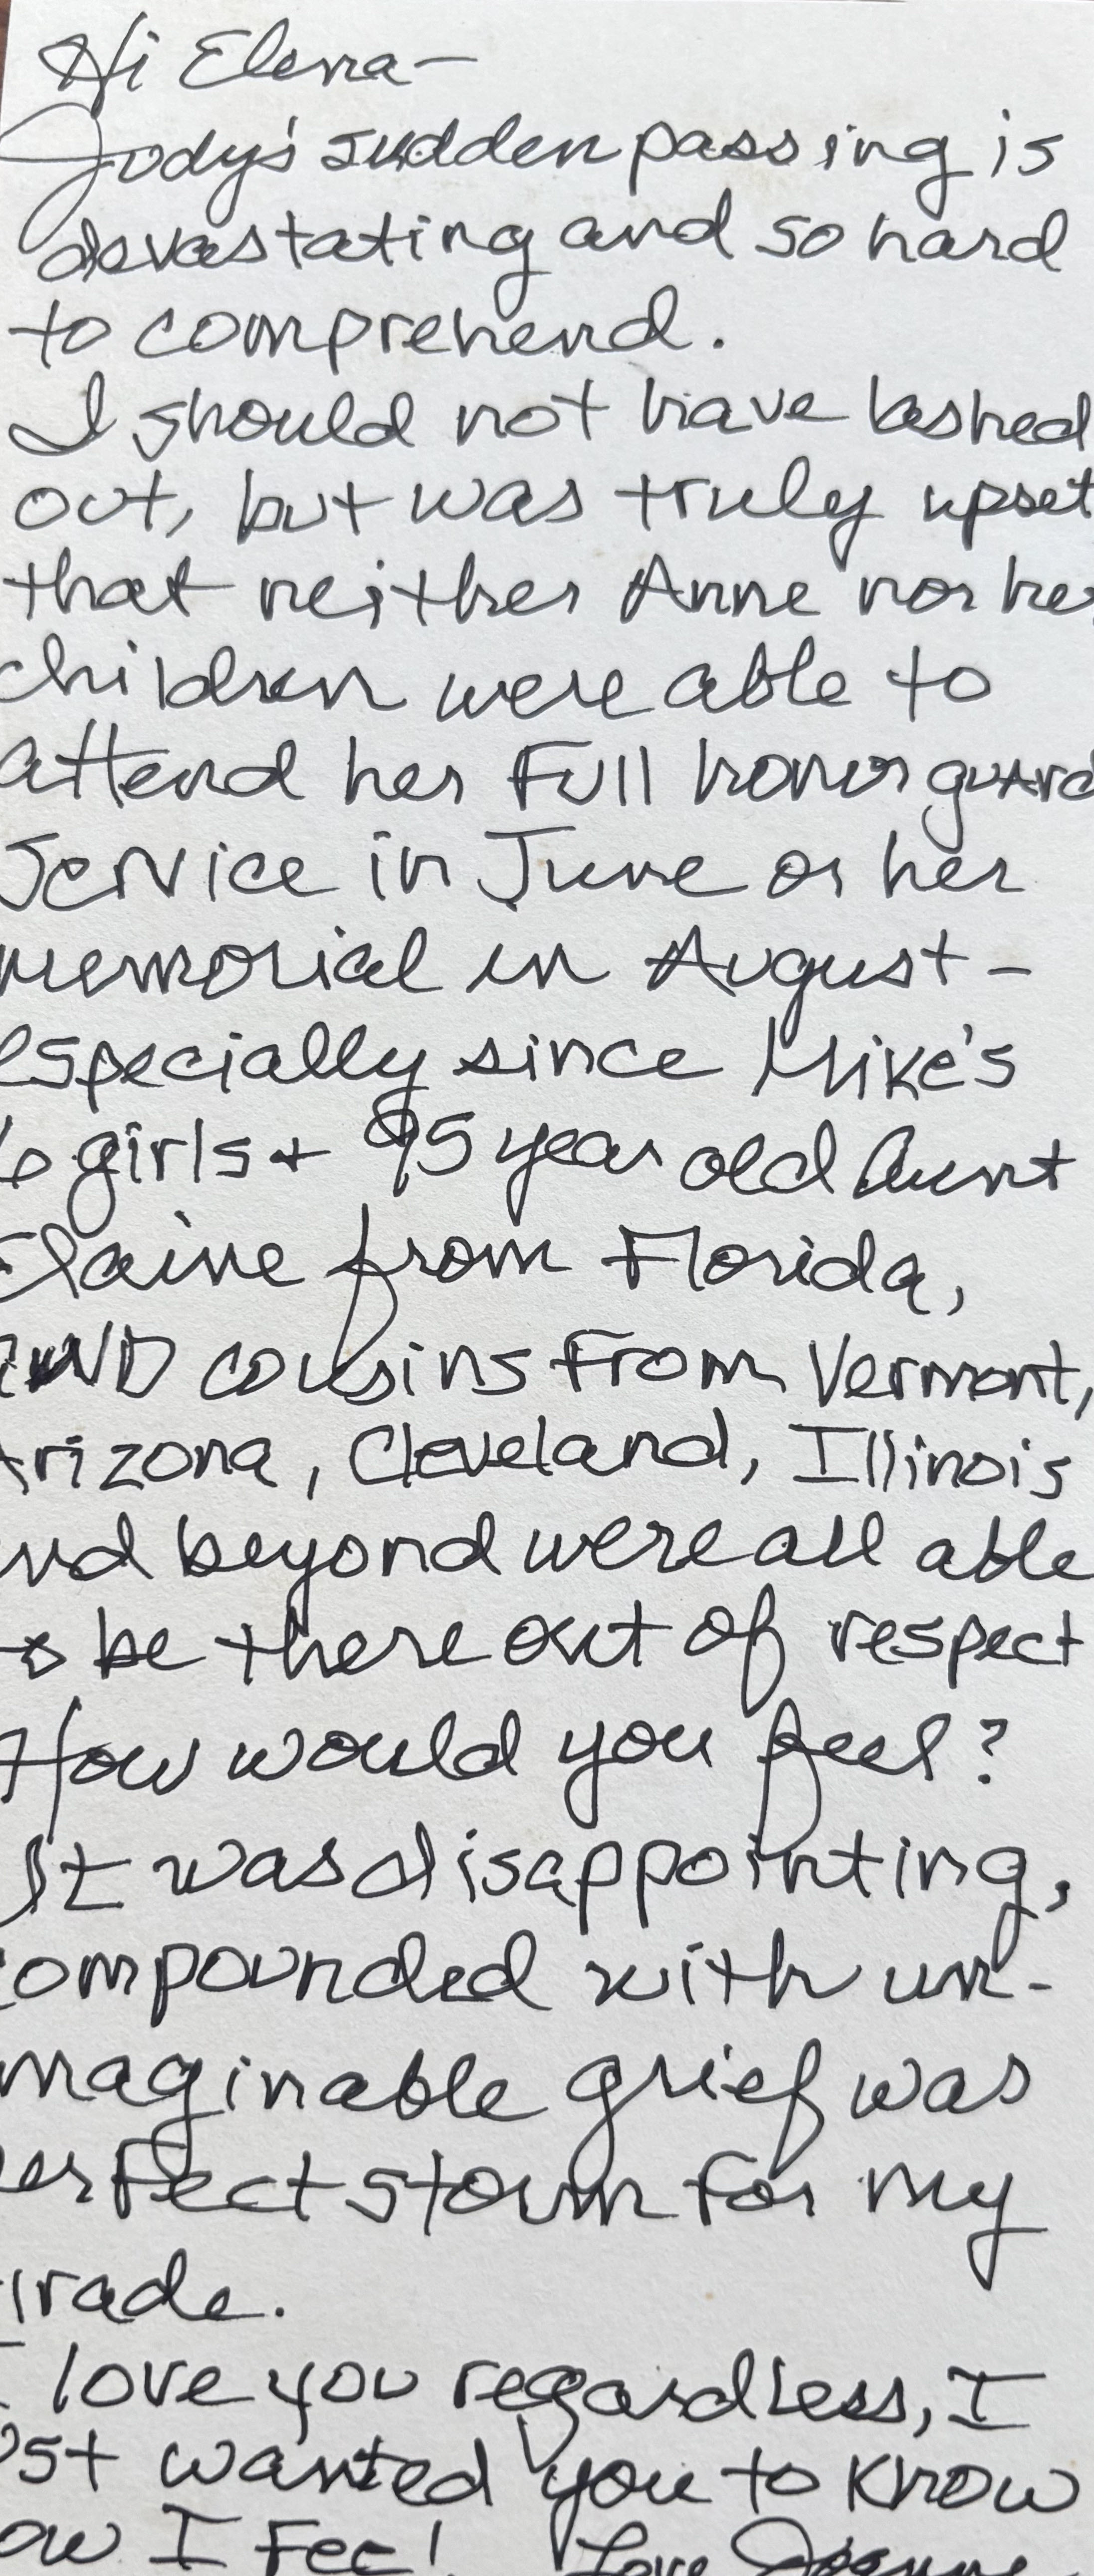 Hi Elena-
Jody's sudden passing is
devastating and so hard
to comprehend.
I should not have lashed
out, but was truly upset
that neither Anne nor her
children were able to
attend her Full honor guard
Service in June or her
memorial in August -
especially since Mike's
6 girls + 95 year old Aunt
Elaine from Florida,
AND cousins From Vermont,
Arizona, Cleveland, Illinois
and beyond were all able
to be there out of respect
How would you feel?
It was disappointing,
compounded with un-
imaginable grief was
perfect storm for my
tirade.
I love you regardless, I
just wanted you to know
how I Feel! Love Joanne